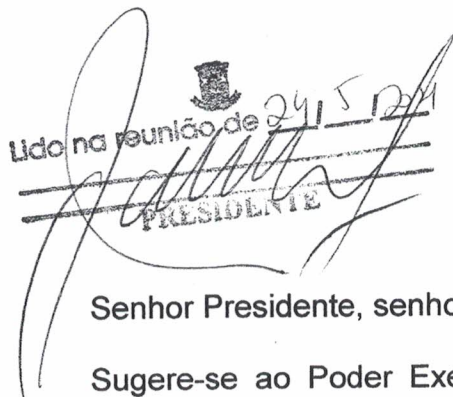 Lido na reunião de 24/5/
PRESIDENTE
Senhor Presidente, senho
Sugere-se ao Poder Exe